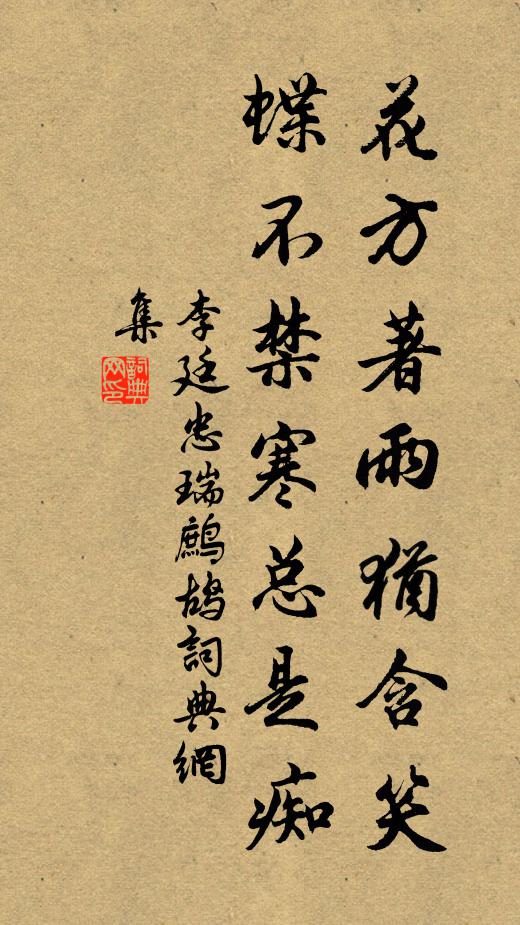 花方著雨猶含笑
蝶不禁寒总是痴
李廷忠瑞鷓鴣詞典網
集
詞典網印